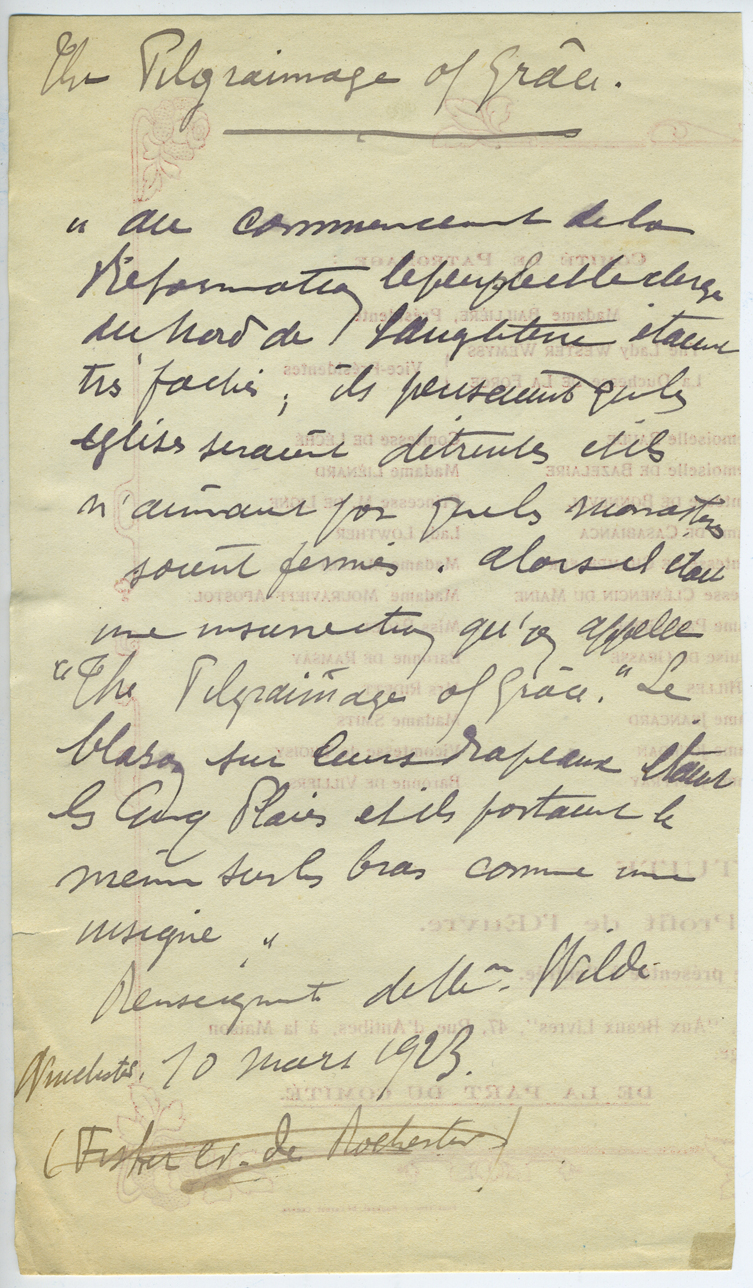 The Pilgraimage of Grâce.
" Au commencement de la
Réformation le peuple et le clergé
du Nord de l'Angleterre étaient
très fachés ; ils pensaient que les
églises seraient détruites et ils
n'aimaient pas que les monastères
soient fermés. Alors il était
une insurrection qu'on appelle
"The Pilgraimage of Grâce." Le
blason sur leurs drapeaux étaient
les Cinq Plaies et ils portaient le
même sur les bras comme une
insigne "
Renseignt de Mme. Wilde
10 mars 1923.
(Fisher Ev. de Rochester)
COMITÉ DE PATRONAGE :
Madame BAILLIÈRE, Présidente
The Lady WESTER WEMYSS
La Duchesse DE LA FORCE
Vice-Présidentes
DE BAZELAIRE
Madame LIÉNARD
DE CASABIANCA
Lady LOWTHER
CLÉMENCIN DU MAINE
Madame MOURAVIEFF-APOSTOL
Baronne DE RAMSAY
JEANCARD
Madame SMITS
Baronne DE VILLIERS
Profit de l'Œuvre.
"Aux Beaux Livres", 47, Rue d'Antibes, à la Maison
DE LA PART DU COMITÉ.